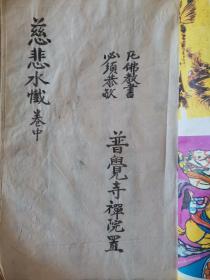 凡佛教書
必須恭敬
普覺寺禪院置
慈悲水懺卷中